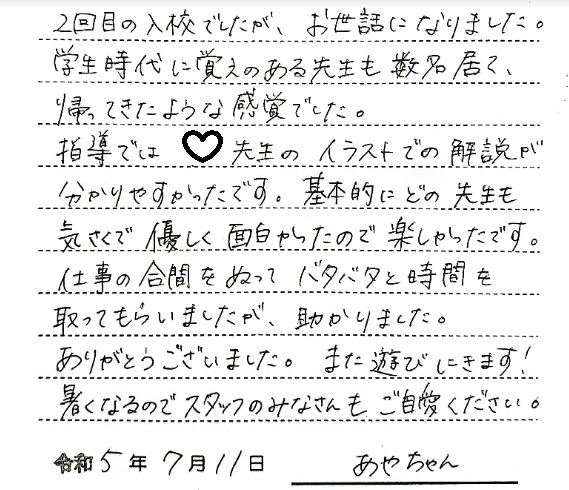 2回目の入校でしたが、お世話になりました。
学生時代に覚えのある先生も数名居て、
帰ってきたような感覚でした。
指導では ♡ 先生のイラストでの解説が
分かりやすかったです。基本的にどの先生も
気さくで優しく面白かったので楽しかったです。
仕事の合間をぬってバタバタと時間を
取ってもらいましたが、助かりました。
ありがとうございました。また遊びにきます!
暑くなるのでスタッフのみなさんも、ご自愛ください。
令和5年7月11日 あやちゃん